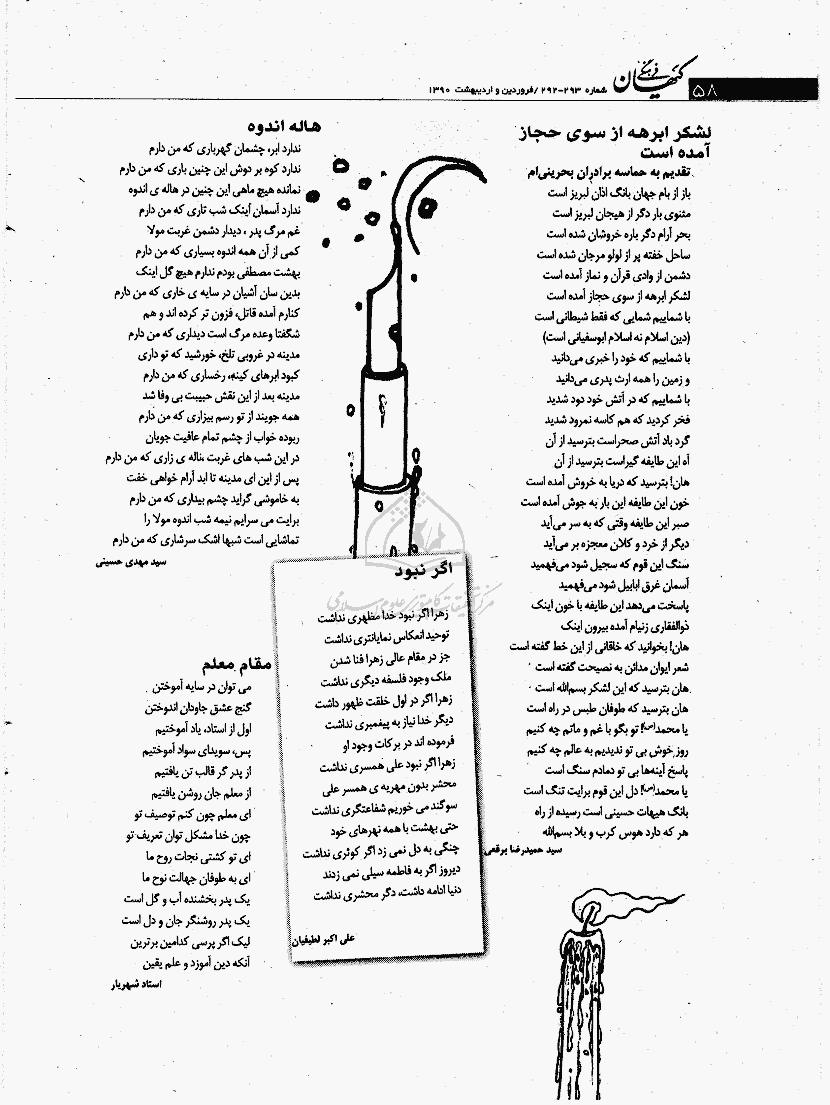 ۵۸
کیهان فرهنگی
شماره ۲۹۳-۲۹۲ /فروردین و اردیبهشت ۱۳۹۰
لشکر ابرهه از سوی حجاز
آمده است
تقدیم به حماسه برادران بحرینی‌ام
باز از بام جهان بانگ اذان لبریز است
مثنوی بار دگر از هیجان لبریز است
بحر آرام دگر باره خروشان شده است
ساحل خفته پر از لولو مرجان شده است
دشمن از وادی قرآن و نماز آمده است
لشکر ابرهه از سوی حجاز آمده است
با شماییم شمایی که فقط شیطانی است
(دین اسلام نه اسلام ابوسفیانی است)
با شماییم که خود را خبری می‌دانید
و زمین را همه ارث پدری می‌دانید
با شماییم که در آتش خود دود شدید
فخر کردید که هم کاسه نمرود شدید
گرد باد آتش صحراست بترسید از آن
آه این طایفه گیراست بترسید از آن
هان! بترسید که دریا به خروش آمده است
خون این طایفه این بار به جوش آمده است
صبر این طایفه وقتی که به سر می‌آید
دیگر از خرد و کلان معجزه بر می‌آید
سنگ این قوم که سجیل شود می‌فهمید
آسمان غرق ابابیل شود می‌فهمید
پاسخت می‌دهد این طایفه با خون اینک
ذوالفقاری زنیام آمده بیرون اینک
هان! بخوانید که خاقانی از این خط گفته است
شعر ایوان مدائن به نصیحت گفته است
هان بترسید که این لشکر بسم‌الله است
هان بترسید که طوفان طبس در راه است
یا محمد(ص)! تو بگو با غم و ماتم چه کنیم
روز خوش بی تو ندیدیم به عالم چه کنیم
پاسخ آینه‌ها بی تو دمادم سنگ است
یا محمد(ص)! دل این قوم برایت تنگ است
بانگ هیهات حسینی است رسیده از راه
هر که دارد هوس کرب و بلا بسم‌الله
سید حمیدرضا برقعی
هاله اندوه
ندارد ابر، چشمان گهرباری که من دارم
ندارد کوه بر دوش این چنین باری که من دارم
نمانده هیچ ماهی این چنین در هاله ی اندوه
ندارد آسمان اینک شب تاری که من دارم
غم مرگ پدر ، دیدار دشمن غربت مولا
کمی از آن همه اندوه بسیاری که من دارم
بهشت مصطفی بودم ندارم هیچ گل اینک
بدین سان آشیان در سایه ی خاری که من دارم
کنارم آمده قاتل، فزون تر کرده اند و هم
شگفتا وعده مرگ است دیداری که من دارم
مدینه در غروبی تلخ، خورشید که تو داری
کبود ابرهای کینه، رخساری که من دارم
مدینه بعد از این نقش حبیبت بی وفا شد
همه جویند از تو رسم بیزاری که من دارم
ربوده خواب از چشم تمام عافیت جویان
در این شب های غربت ،ناله ی زاری که من دارم
پس از این ای مدینه تا ابد آرام خواهی خفت
به خاموشی گراید چشم بیداری که من دارم
برایت می سرایم نیمه شب اندوه مولا را
تماشایی است شبها اشک سرشاری که من دارم
سید مهدی حسینی
اگر نبود
زهرا اگر نبود خدا مظهری نداشت
توحید انعکاس نمایانتری نداشت
جز در مقام عالی زهرا فنا شدن
ملک وجود فلسفه دیگری نداشت
زهرا اگر در اول خلقت ظهور داشت
دیگر خدا نیاز به پیغمبری نداشت
فرموده اند در برکات وجود او
زهرا اگر نبود علی همسری نداشت
محشر بدون مهریه ی همسر علی
سوگند می خوریم شفاعتگری نداشت
حتی بهشت با همه نهرهای خود
چنگی به دل نمی زد اگر کوثری نداشت
دیروز اگر به فاطمه سیلی نمی زدند
دنیا ادامه داشت، دگر محشری نداشت
علی اکبر لطیفیان
مقام معلم
می توان در سایه آموختن
گنج عشق جاودان اندوختن
اول از استاد، یاد آموختیم
پس، سویدای سواد آموختیم
از پدر گر قالب تن یافتیم
از معلم جان روشن یافتیم
ای معلم چون کنم توصیف تو
چون خدا مشکل توان تعریف تو
ای تو کشتی نجات روح ما
ای به طوفان جهالت نوح ما
یک پدر بخشنده آب و گل است
یک پدر روشنگر جان و دل است
لیک اگر پرسی کدامین برترین
آنکه دین آموزد و علم یقین
استاد شهریار
مرکز تحقیقات کامپیوتری علوم اسلامی